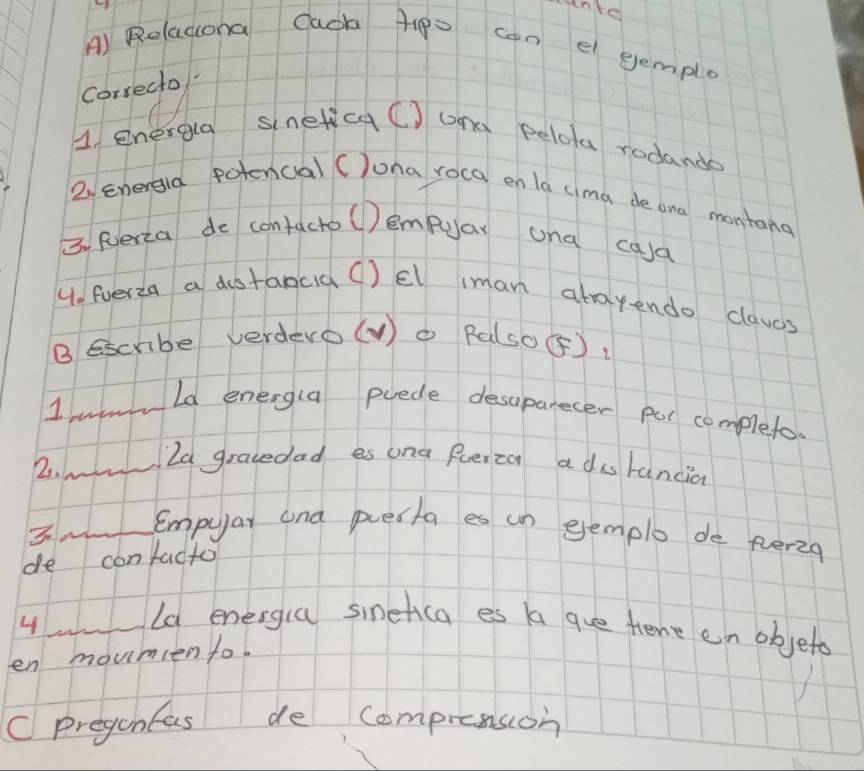 A) Relaciona Cada tipo con el ejemplo
correcto.
1. energia sinetica () una pelota rodando
2. Energia potencial () una roca en la cima de una montana
3. fuerza de contacto () empujar una caja
4. fuerza a distancia () El iman atrayendo clavos
B Escribe verdero (V) o Falso (F):
1 La energia puede desaparecer por completo.
2. La gravedad es una fuerza a distancia
3 Empujar una puerta es un ejemplo de fuerza
de contacto
4 La energia sinetica es la que tiene un objeto
en movimiento.
C preguntas de comprension